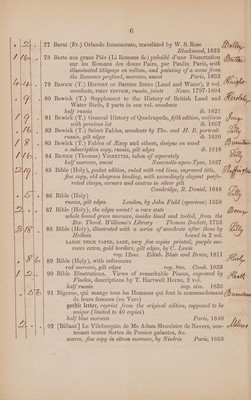 6
77 Berni (Fr.) Orlando Innamorato, translated by W. S. Rose
Blackwood, 1823
78 Berte aus grans Piés (Li Romans de) précédé d'une Dissertation
sur les Romans des douze Pairs, par Paulin Paris, with
illuminated titlepage on vellum, and painting of a scene from
the Romance prefixed, morocco, uncut Paris, 1832
79 Bewick (T.) History of British Birds (Land and Water), 2 vol.
woodcuts, FIRST EDITION, russia, joints Newc. 1797-1804
80 Bewick (T.) Supplement to the History of British Land and
Water Birds, 2 parts in one vol. woodcuts
half russia ib. 1821
81 Bewick (T.) General History of Quadrupeds, fifth edition, woodcuts
with previous lot ib. 1807
82 Bewick (T.) Select Fables, woodcuts by Tho. and R. B. portrait
russia, gilt edges ib. 1820
83 Bewick (T.) Fables of Æsop and others, designs on wood
a subscription copy, russia, gilt edges ib. 1819
84 Bewick (Thomas) Vignettes, tales of separately
half morocco, uncut Newcastle-upon-Tyne, 1827
85 Bible (Holy), pocket edition, ruled with red lines, engraved title,
fine copy, old shagreen binding, with exceedingly elegant perfo-
rated clasps, corners and centres in silver gilt
Cambridge, R. Daniel, 1648
86 Bible (Holy)
russia, gilt edges London, by John Field (spurious) 1658
87 Bible (Holy), the edges uncut! a rare state
whole bound green morocco, insides lined and tooled, from the
Rev. Theod. Williams's Library Thomas Baskett, 1753
88 Bible (Holy), illustrated with a series of woodcuts after those by
Holbein bound in 2 vol.
LARGE THICK PAPER, RARE, very few copies printed, purple mo-
rocco extra, gold borders, gilt edges, by C. Lewis
roy. 12mo. Edinb. Blair and Bruce, 1811
89 Bible (Holy), with references
red morocco, gilt edges roy. 8vo. Camb. 1823
90 Bible Illustrations. Views of remarkable Places, engraved by
Finden, descriptions by T. Hartwell Horne, 2 vol.
half russia imp. 8vo. 1836
91 Bigorne, qui mange tous les Hommes qui font le commandement
de leurs femmes (en Vers)
gothic letter, reprint from the original edition, supposed to be
unique (limited to 40 copies)
half blue morocco Paris, 1840
92 [Billaut] Le Vilebrequin de Me Adam Menuisier de Nevers, con-
tenant toutes Sortes de Poesies galantes, &c.
scarce, fine copy in citron morocco, by Niedrée Paris, 1663